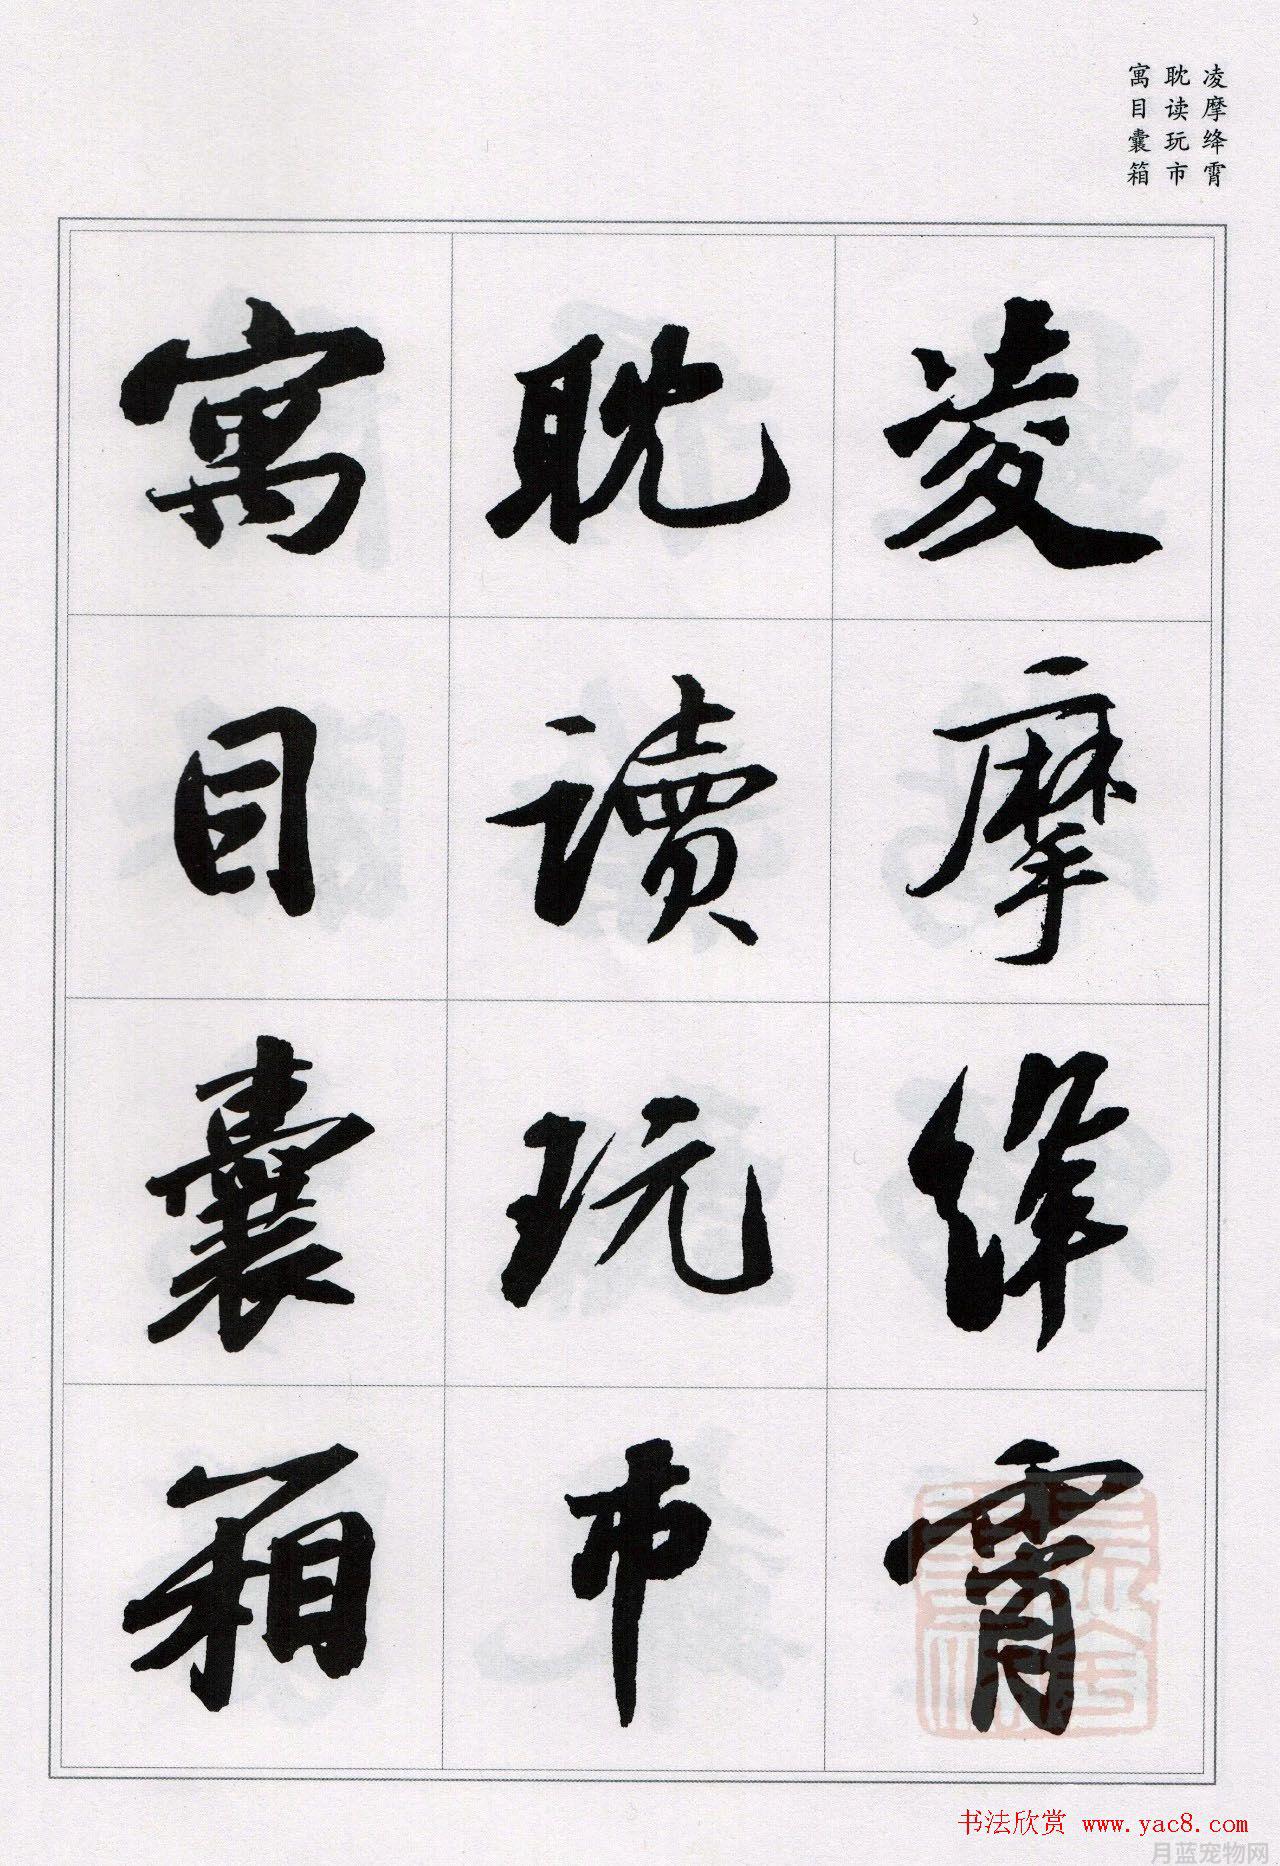 凌摩绛霄
耽读玩市
寓目囊箱
凌摩絳霄
耽讀玩市
寓目囊箱
书法欣赏 www.yac8.com
月蓝宠物网